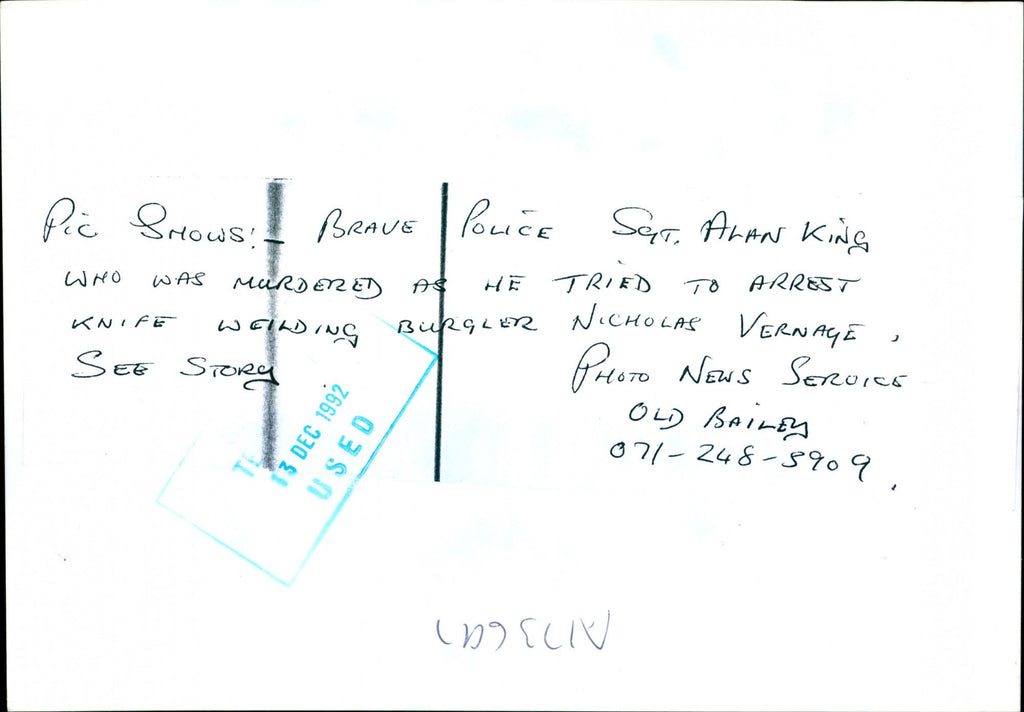 Pic Shows:- Brave Police Sgt. Alan King
who was murdered as he tried to arrest
knife weilding burgler Nicholas Vernage.
See Story
Photo News Service
Old Bailey
071-248-5909.
13 DEC 1992
USED